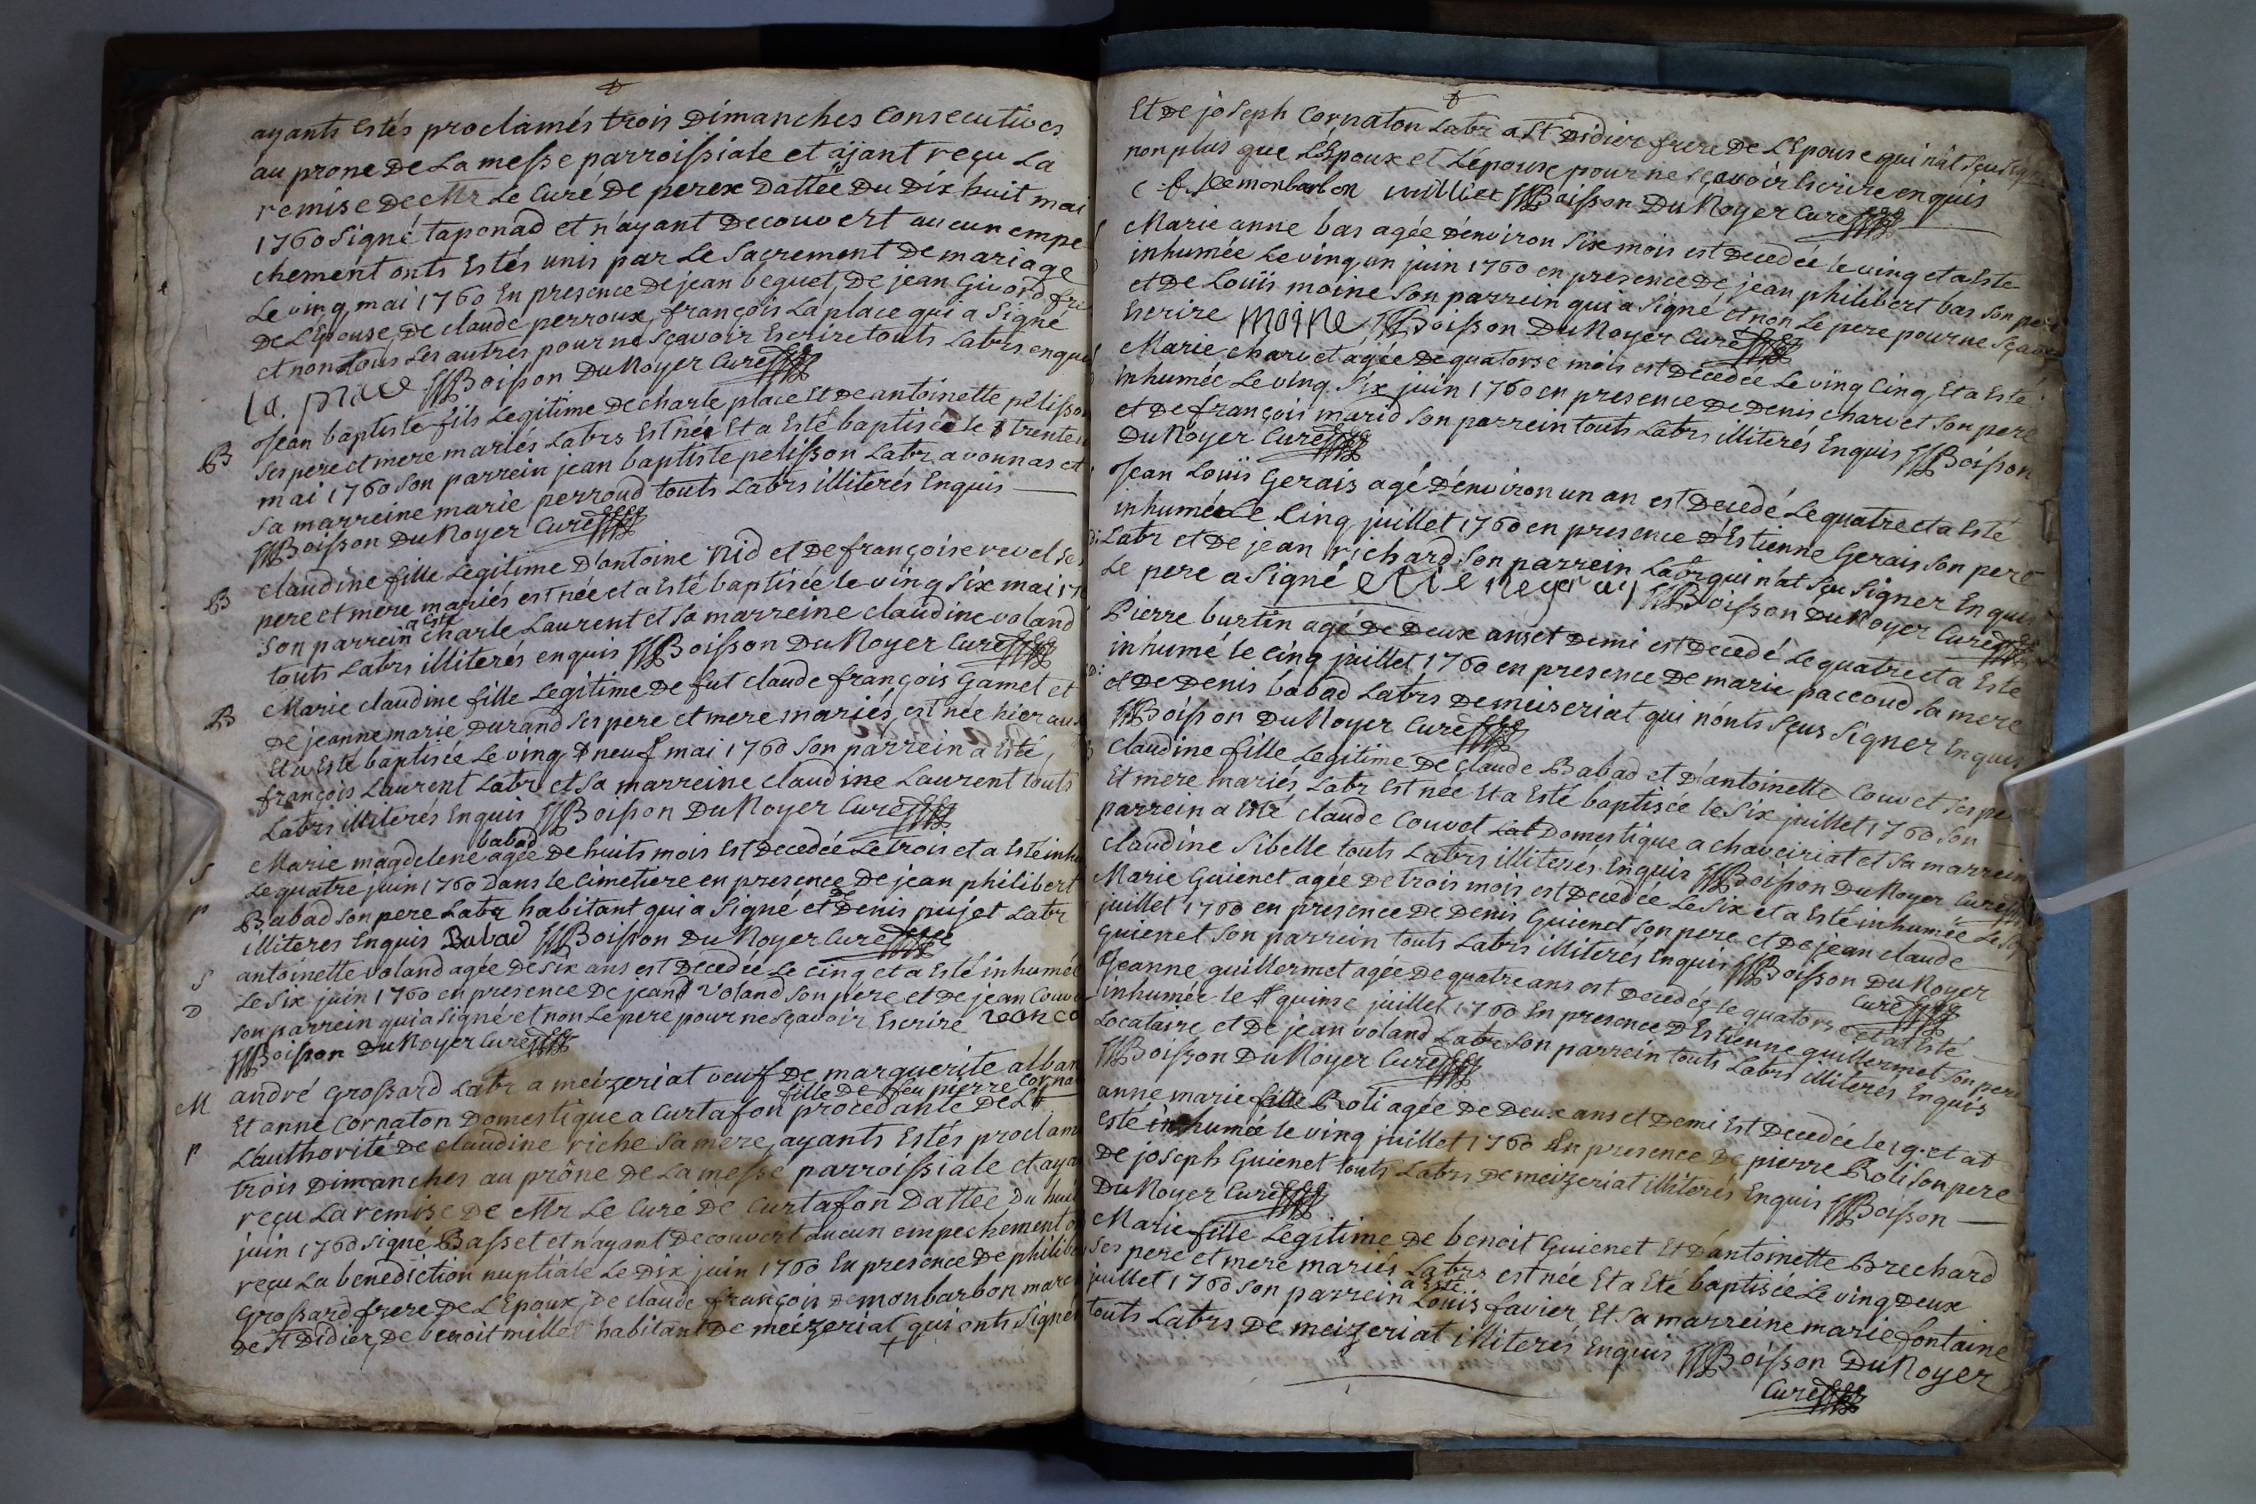 ayants Estés proclamés trois Dimanches Consecutives
au prone De La messe parroissiale et aÿant reçu La
remise De Mr Le Curé De perex Dattée Du Dix huit mai
1760 Signé taponad et n'ayant Decouvert aucun empe
chement onts Estés unis par Le Sacrement De mariage
Le ving mai 1760 En presence De jean bequet, De jean Givord fre
De L'Epouse, De claude perroux, françois La place qui a Signé
et non tous Les autres pour ne Sçavoir Escrire touts Labrs enquis
la place Boisson Du Noyer Curé
B
Jean baptiste fils Legitime De charle place Et De antoinette pelisson
Ses pere et mere mariés Labrs Est née Et a Esté baptisée le trente
mai 1760 Son parrein jean baptiste pelisson Labr a vonnas et
Sa marreine marie perroud touts Labrs illiterés Enquis
Boisson Du Noyer Curé
B
claudine fille Legitime D'antoine nid et De françoise revel Ses
pere et mere mariés est née et a Esté baptisée le ving Six mai 17
Son parrein a esté charle Laurent et Sa marreine claudine voland
touts Labrs illiterés enquis Boisson Du Noyer Curé
B
Marie claudine fille Legitime De fut claude françois Gamet et
De jeanne marie Durand Ses pere et mere mariés, est née hier au
Et a Esté baptisée Le ving neuf mai 1760 Son parrein a Esté
françois Laurent Labr et Sa marreine claudine Laurent touts
Labrs illiterés Enquis Boisson Du Noyer Curé
S
Marie magdelene babad agée De huits mois Est Decedée Le trois et a Esté inhu
P
Le quatre juin 1760 Dans le Cimetiere en presence De jean philibert
Babad Son pere Labr habitant qui a Signé et De Denis pujet Labr
illiteres Enquis Babad Boisson Du Noyer Curé
S
antoinette voland agée De Six ans est Decedée Le Cinq et a Esté inhumée
D
Le Six juin 1760 en presence De jean voland Son pere et De jean Couv
Son parrein qui a Signé et non Le pere pour ne Sçavoir Escrire
Boisson Du Noyer Curé
M
andré Grossard Labr a meizeriat veuf De marguerite alban
Et anne Cornaton Domestique a Curtafon fille De feu pierre Corna procedante De
P
L'authorité De claudine riche Sa mere, ayants Estés proclamé
trois Dimanches au prône De La messe parroissiale et aya
reçu La remise De Mr Le Curé De Curtafon Dattée Du huit
juin 1760 Signé Basset et n'ayant Decouvert aucun empechement on
reçu La benediction nuptiale Le Dix juin 1760 En presence De philib
Grossard frere De L'Epoux, De claude françois Demonbarbon marc
De St Didier, De benoit millet habitant De meizeriat qui onts Signé
Et De joseph Cornaton Labr a St Didier frere De L'Epouse qui n'at Sçu Signe
non plus que L'Epoux et L'epouse pour ne Sçavoir Escrire enquis
Demonbarbon milliet Boisson Du Noyer Curé
Marie anne bas agée D'environ Six mois est Decedée le ving et a Esté
inhumée Le ving un juin 1760 en presence De jean philibert bas Son pere
et De Louïs moine Son parrein qui a Signé et non Le pere pour ne Sçavoir
Escrire moine Boisson Du Noyer Curé
Marie charvet agée De quatorse mois est Decedée Le ving Cinq, Et a Esté
inhumée Le ving Six juin 1760 en presence De Denis charvet Son pere
et De françois murid Son parrein touts Labrs illiterés Enquis Boisson
Du Noyer Curé
Jean Louïs Gerais agé D'environ un an est Decedé Le quatre et a Esté
inhumée Le Cinq juillet 1760 en presence D'Estienne Gerais Son pere
Labr et De jean richard Son parrein Labr qui n'at Sçu Signer Enquis
Le pere a Signé Boisson Du Noyer Curé
Pierre burtin agé De Deux ans et Demi est Decedé Le quatre et a Esté
inhumé le Cinq juillet 1760 en presence De marie paccoud Sa mere
et De Denis babad Labrs De meizeriat qui n'onts Sçus Signer Enquis
Boisson Du Noyer Curé
claudine fille Legitime De claude Babad et D'antoinette Couvet Ses pe
Et mere mariés Labr Est née Et a Esté baptisée le Six juillet 1760 Son
parrein a esté claude Couvet Lab Domestique a chaveiriat et Sa marrein
claudine Sibelle touts Labrs illiteres Enquis Boisson Du Noyer Curé
Marie Guienet agée De trois mois est Decedée Le Six et a Esté inhumée Le
juillet 1760 en presence De Denis Guienet Son pere et De jean claude
Guienet Son parrein touts Labrs illiterés Enquis Boisson Du Noyer
Curé
Jeanne guillermet agée De quatre ans est Decedée le quatorse et at Esté
inhumée le quinse juillet 1760 En presence D'Estienne guillermet Son pere
Locataire et De jean voland Labr Son parrein touts Labrs illiterés Enquis
Boisson Du Noyer Curé
anne marie fille Roli agée De Deux ans et Demi Est Decedée le 19 et at
esté inhumée le ving juillet 1760 En presence De pierre Roli Son pere
De joseph Guienet touts Labrs De meizeriat illiterés Enquis Boisson
Du Noyer Curé
Marie fille Legitime De benoit Guienet Et D'antoinette Brechard
Ses pere et mere mariés Labrs est née Et a Eté baptisée Le ving Deux
juillet 1760 Son parrein a Esté Louïs favier, Et Sa marreine marie fontaine
touts Labrs De meizeriat illiteres Enquis Boisson Du Noyer
Curé